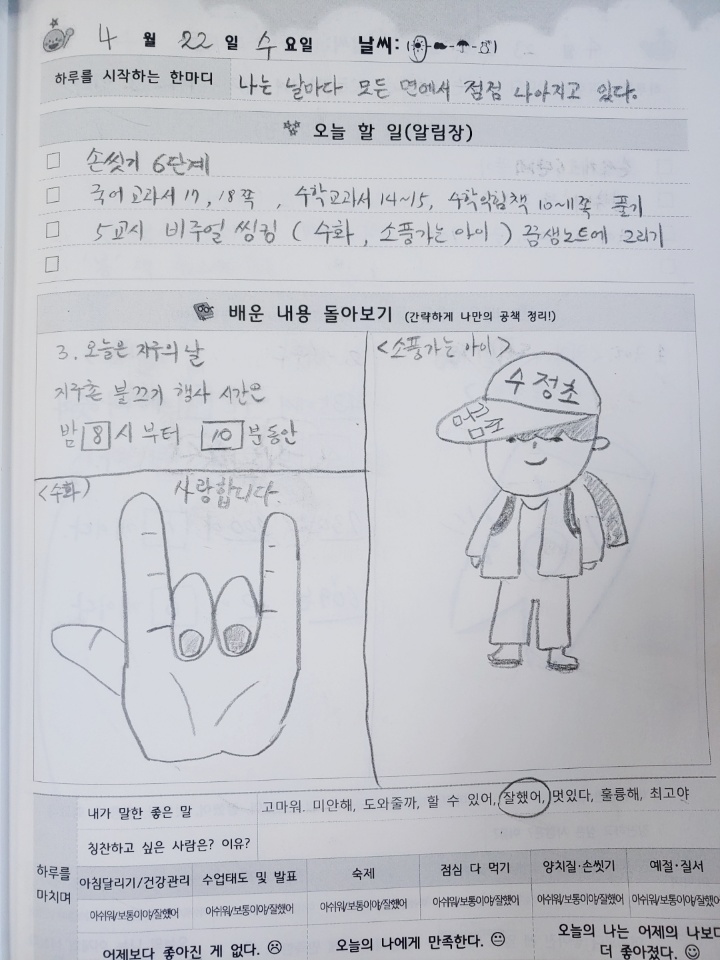 4 월 22 일 수 요일 날씨: ( - - - )
하루를 시작하는 한마디 나는 날마다 모든 면에서 점점 나아지고 있다.
오늘 할 일(알림장)
손씻기 6단계
국어교과서 17, 18쪽 , 수학교과서 14~15, 수학익힘책 10~11쪽 풀기
5교시 비주얼 씽킹 ( 수화, 소풍가는 아이 ) 꿈생노트에 그리기
배운 내용 돌아보기 (간략하게 나만의 공책 정리!)
3. 오늘은 지구의 날
지구촌 불끄기 행사 시간은
밤 8 시 부터 10 분동안
<수화> 사랑합니다.
<소풍가는 아이>
수정초
내가 말한 좋은 말 고마워. 미안해, 도와줄까, 할 수 있어, 잘했어, 멋있다, 훌륭해, 최고야
칭찬하고 싶은 사람은? 이유?
하루를 마치며
아침달리기/건강관리 수업태도 및 발표 숙제 점심 다 먹기 양치질·손씻기 예절·질서
아쉬워/보통이야/잘했어 아쉬워/보통이야/잘했어 아쉬워/보통이야/잘했어 아쉬워/보통이야/잘했어 아쉬워/보통이야/잘했어 아쉬워/보통이야/잘했어
어제보다 좋아진 게 없다. 오늘의 나에게 만족한다. 오늘의 나는 어제의 나보다
더 좋아졌다.